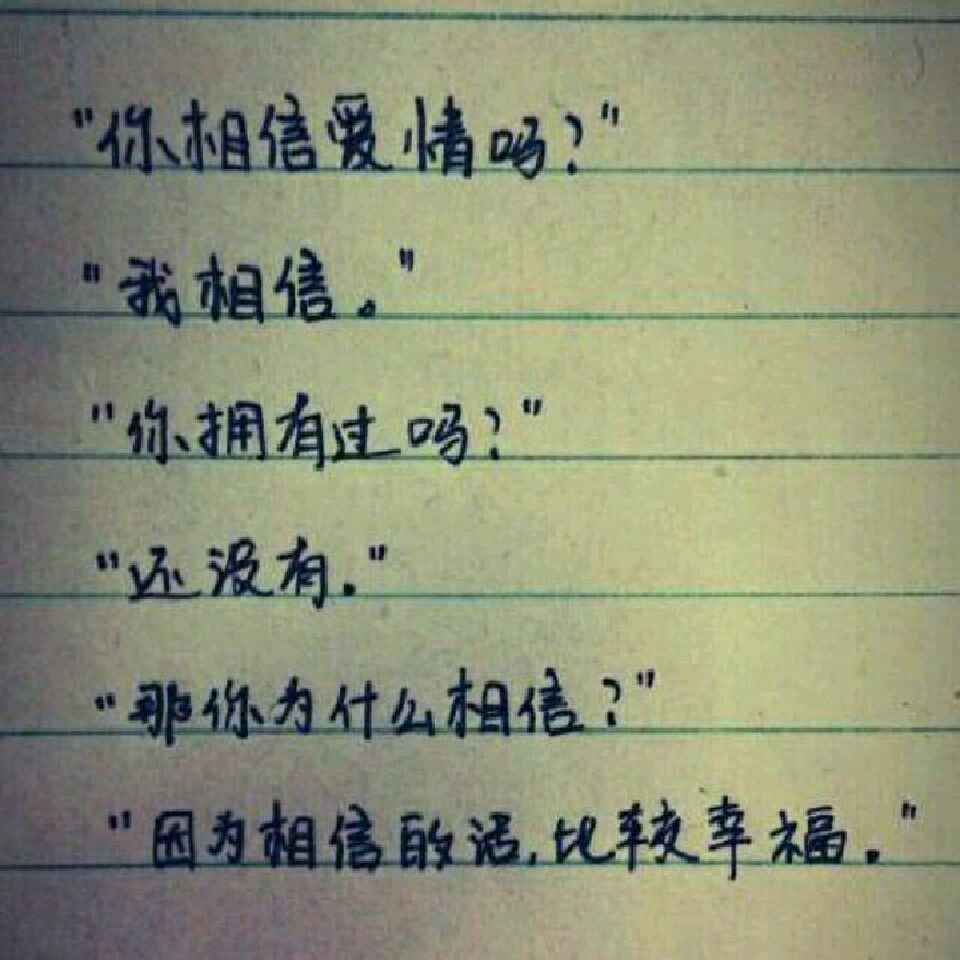 "你相信爱情吗?"
"我相信。"
"你拥有过吗?"
"还没有."
"那你为什么相信?"
"因为相信的话,比较幸福."